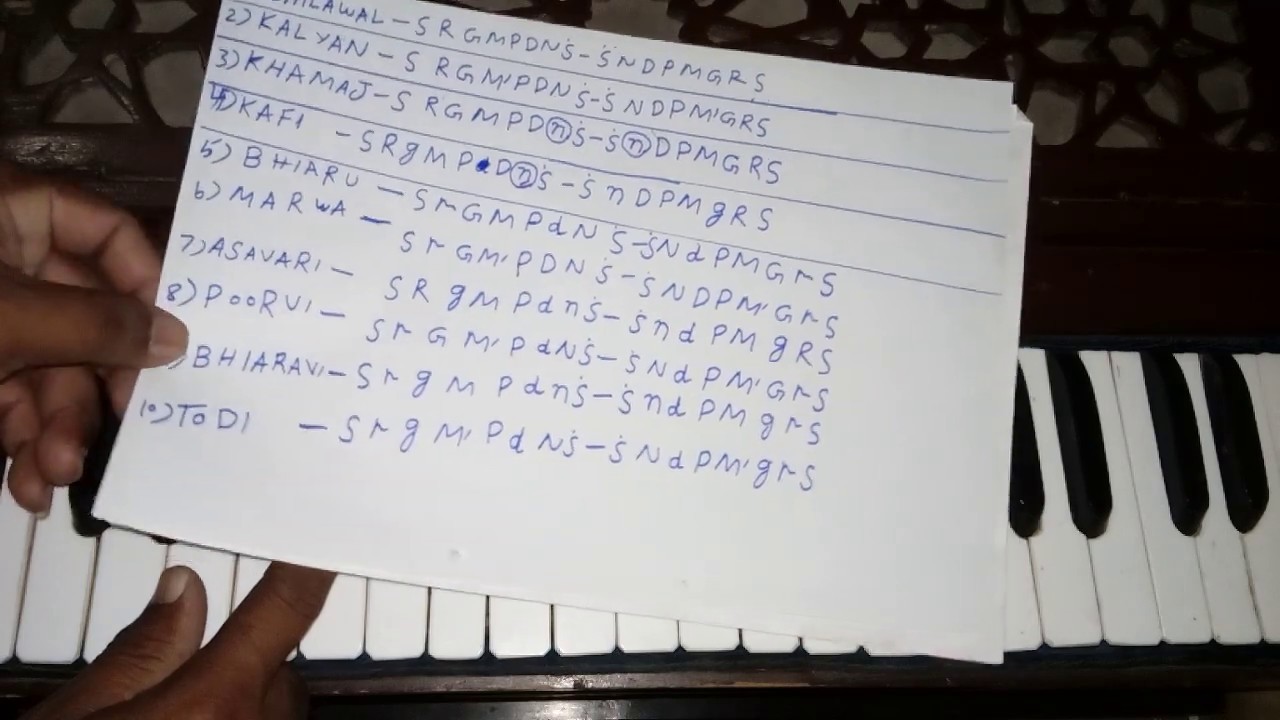 BILAWAL – S R G M P D N Ṡ – Ṡ N D P M G R S
2) KALYAN – S R G M' P D N Ṡ – Ṡ N D P M' G R S
3) KHAMAJ – S R G M P D n Ṡ – Ṡ n D P M G R S
4) KAFI – S R g M P D n Ṡ – Ṡ n D P M g R S
5) BHIARU – S r G M P d N Ṡ – Ṡ N d P M G r S
6) MARWA – S r G M' P D N Ṡ – Ṡ N D P M' G r S
7) ASAVARI – S R g M P d n Ṡ – Ṡ n d P M g R S
8) POORVI – S r G M' P d N Ṡ – Ṡ N d P M' G r S
) BHIARAVI – S r g M P d n Ṡ – Ṡ n d P M g r S
10) TODI – S r g M' P d N Ṡ – Ṡ N d P M' g r S